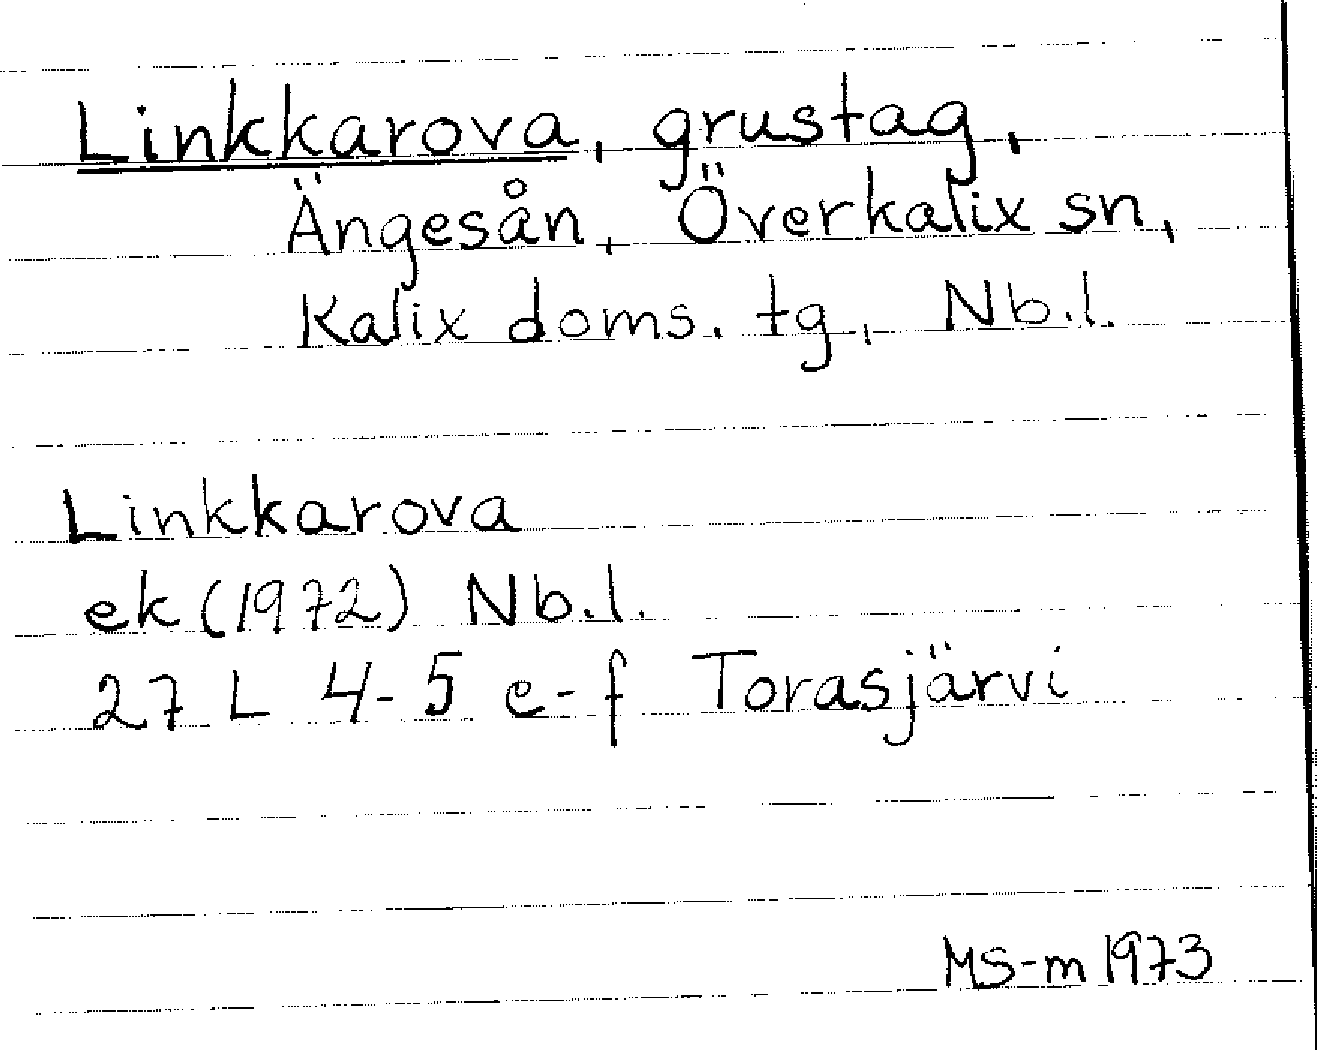 Linkkarova, grustag,
Ängesån, Överkalix sn,
Kalix doms. tg, Nb.l.
Linkkarova
ek (1972) Nb.l.
27 L 4-5 e-f Torasjärvi
MS-m 1973